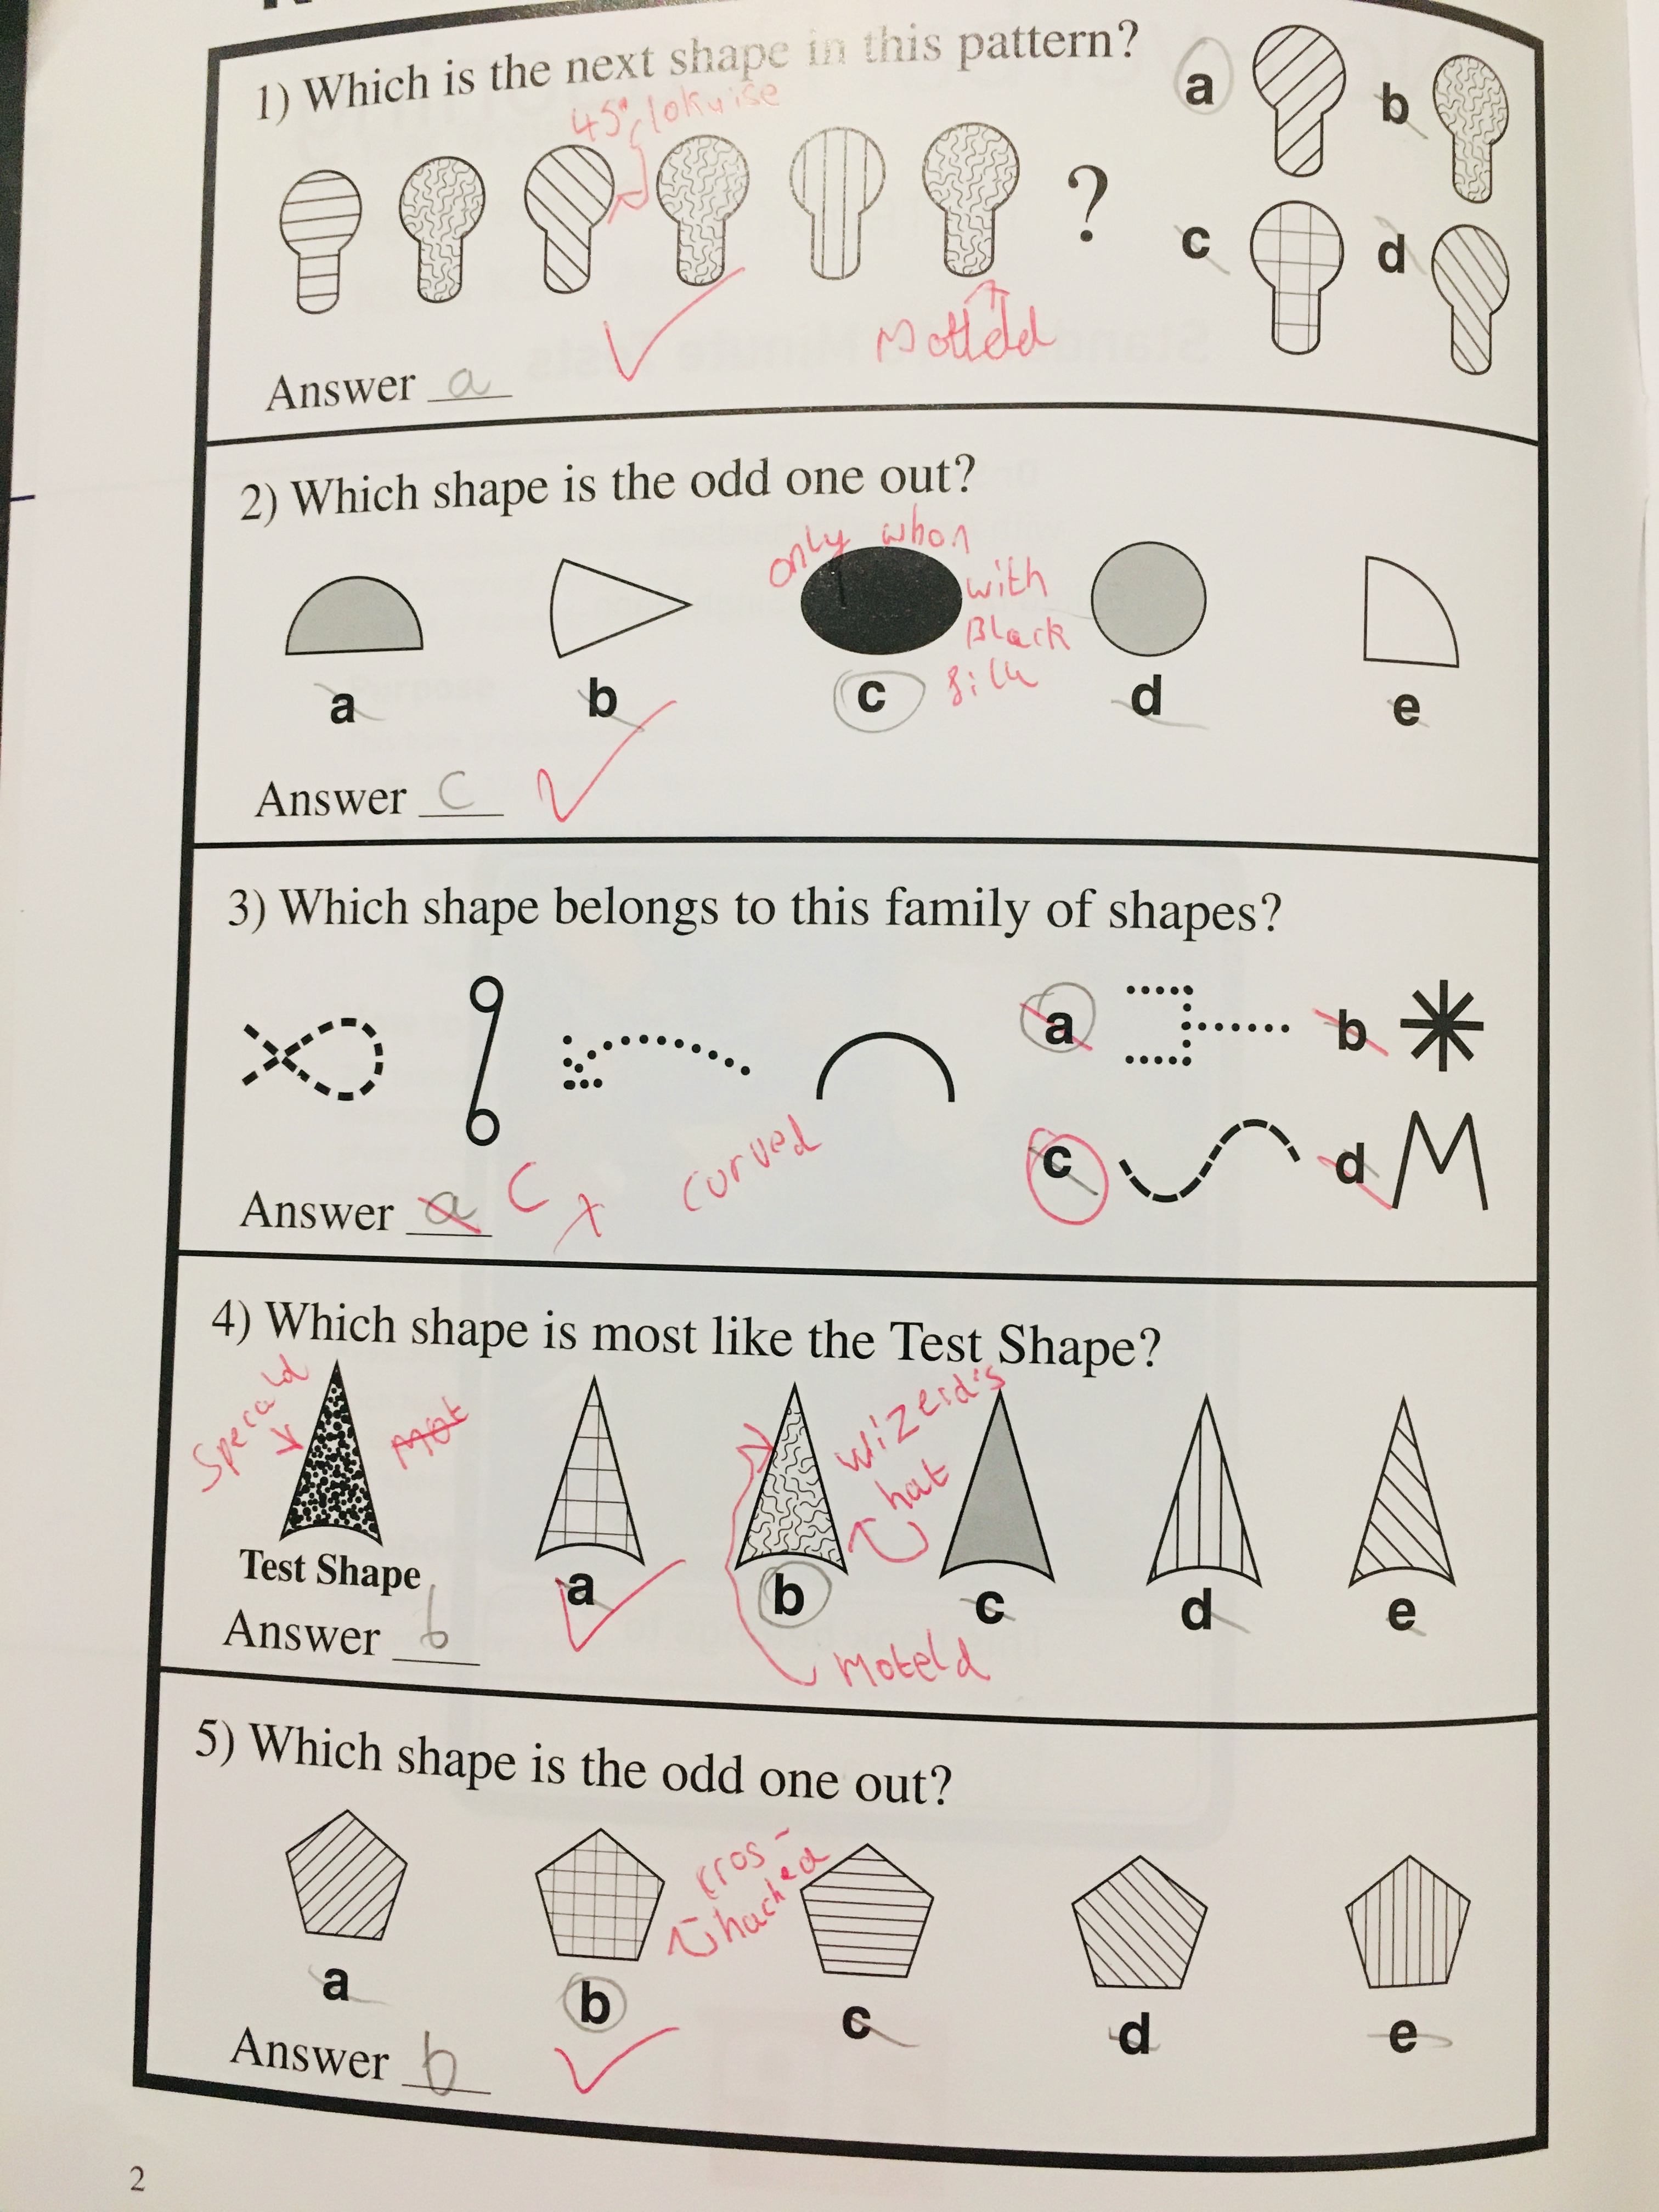 1) Which is the next shape in this pattern?
45° clokwise
?
a
b
c
d
Mottdd
Answer a
2) Which shape is the odd one out?
only whon
with
Black
fill
a
b
c
d
e
Answer c
3) Which shape belongs to this family of shapes?
a
b
c
d
curved
Answer a C
4) Which shape is most like the Test Shape?
Specald
Mot
wizerd's
hat
Test Shape
a
b
c
d
e
Answer b
Moteld
5) Which shape is the odd one out?
cros-
hached
a
b
c
d
e
Answer b
2